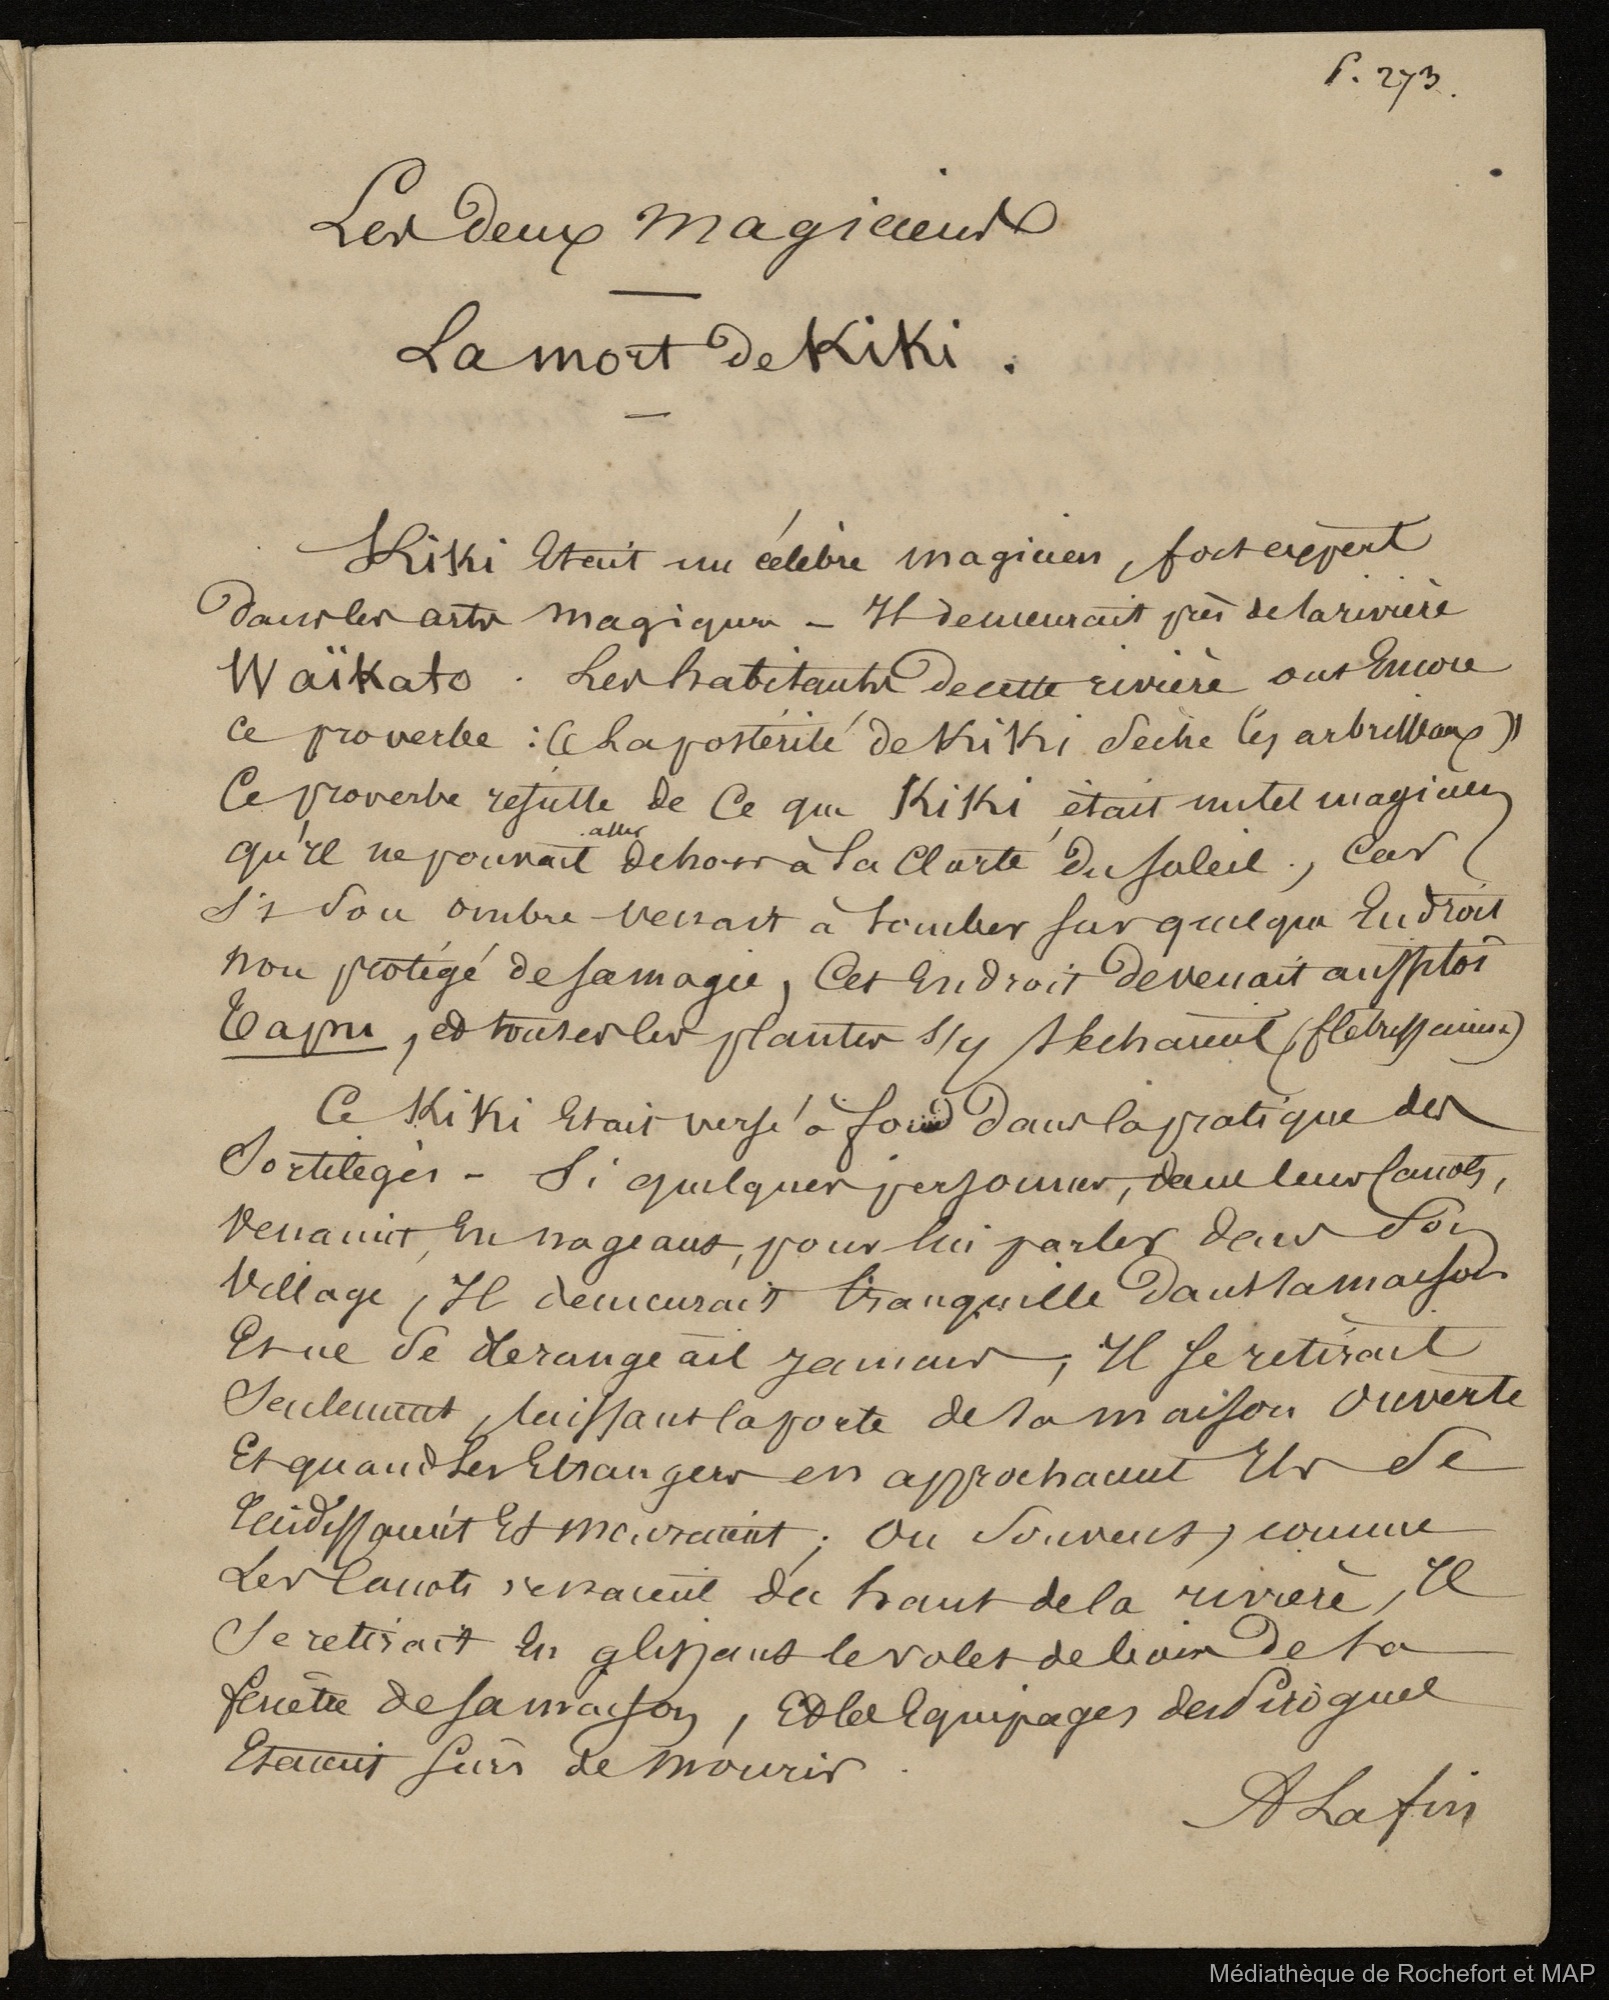 P. 273.
Les deux magiciens
La mort de KiKi.
KiKi Etait un célèbre magicien, fort expert
dans les arts magiques – Il demeurait près de la rivière
Waïkato. Les habitants de cette rivière ont Encore
ce proverbe : « La postérité de KiKi Sèche les arbrisseaux »
Ce proverbe résulte de Ce que KiKi était un tel magicien
qu'Il ne pouvait aller dehors à la Clarté du Soleil., Car
Si Son ombre venait à tomber sur quelque Endroit
non protégé de sa magie, Cet Endroit devenait aussitôt
Tapu, et toutes les plantes s'y séchaient (flétrissaient)
Ce KiKi Etait versé à fond dans la pratique des
Sortilèges – Si quelques personnes, dans leurs Canots,
Venaient, En nageant, pour lui parler dans Son
Village, Il demeurait tranquille dans sa maison
Et ne Se derangeait jamais, Il Se retirait
Seulement, laissant la porte de sa maison Ouverte
Et quand Les Etrangers en approchaient Ils Se
Roidissaient Et mouraient ; Ou Souvent, comme
Les Canots venaient du haut de la rivière, Il
Se retirait En glissant le volet de bois de sa
fenêtre de sa maison, Et les Equipages des Pirogues
Etaient Surs de Mourir.
A La fin
Médiathèque de Rochefort et MAP